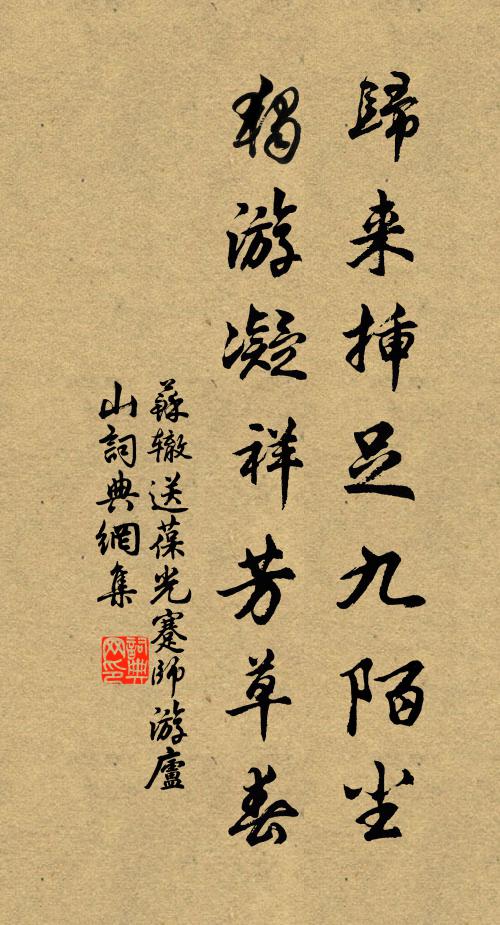 歸来挿足九陌尘
獨游凝祥芳草春
蘇辙送葆光蹇師游廬
山詞典網集
詞典网印